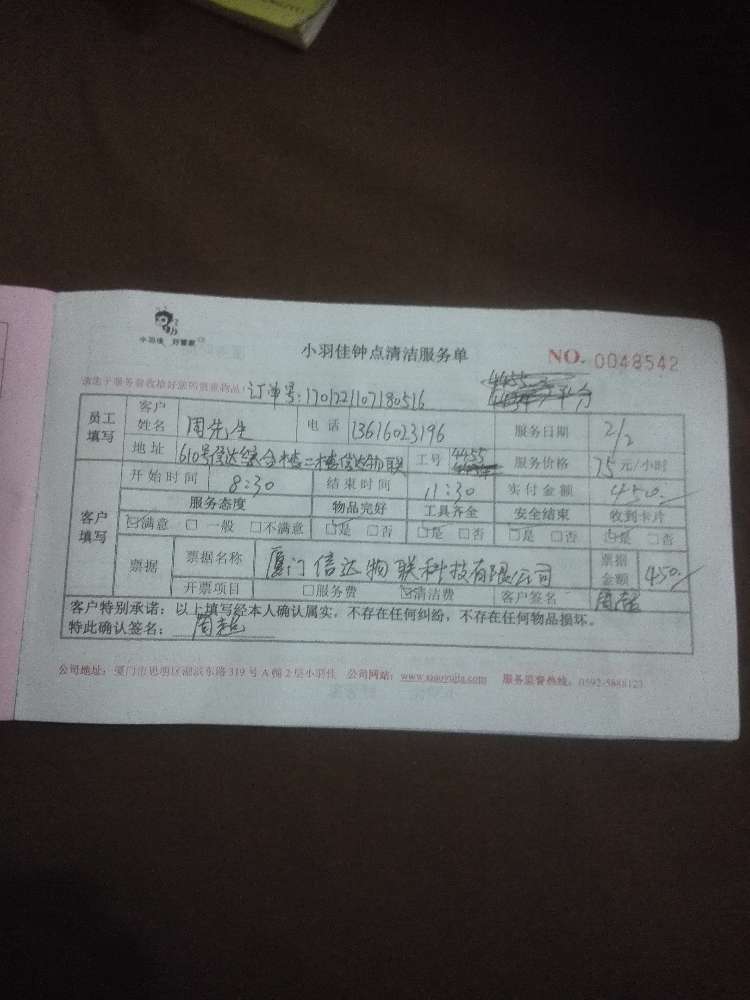 小羽佳 好管家
小羽佳钟点清洁服务单 NO. 0048542
订单号:1701221107180516 平分
员工填写 客户姓名 周先生 电话 13616023196 服务日期 2/2
地址 610号信达综合楼二楼信达物联 工号 4455 服务价格 75元/小时
客户填写 开始时间 8:30 结束时间 11:30 实付金额 450
服务态度 物品完好 工具齐全 安全结束 收到卡片
☑满意 □一般 □不满意 ☑是 □否 ☑是 □否 ☑是 □否 ☑是 □否
票据 票据名称 厦门信达物联科技有限公司 票据金额 450
开票项目 □服务费 ☑清洁费 客户签名
客户特别承诺:以上填写经本人确认属实,不存在任何纠纷,不存在任何物品损坏。
特此确认签名:
公司地址:厦门市思明区湖滨东路319号A幢2层小羽佳 公司网站:www.xiaoyujia.com 服务监督热线:0592-5888123